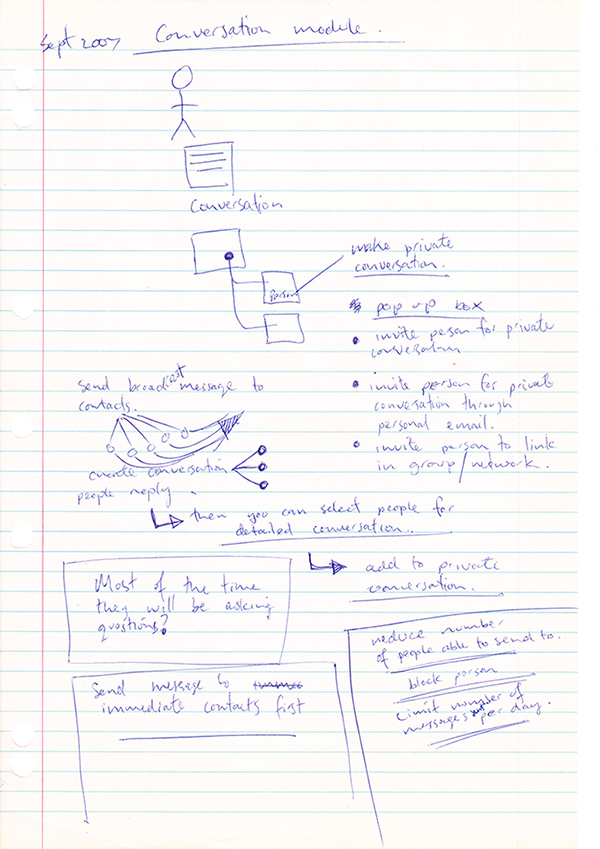 Sept 2007
Conversation module.
Conversation
make private
conversation.
person
pop up box
• invite person for private
conversation
• invite person for private
conversation through
personal email.
• invite person to link
in group/network.
Send broadcast message to
contacts.
create conversation
people reply.
then you can select people for
detailed conversation.
add to private
conversation.
Most of the time
they will be asking
questions?
Send message to
immediate contacts first
reduce number
of people able to send to.
block person
Limit number of
messages per day.